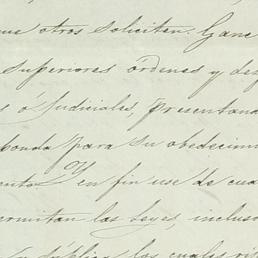 ue otros soliciten. Gane
superiores órdenes y des
s ó Judiciales, presentand
ponda para su obedecimi
ento Y en fin use de cua
ermitan las leyes, inclus
pública los cuales